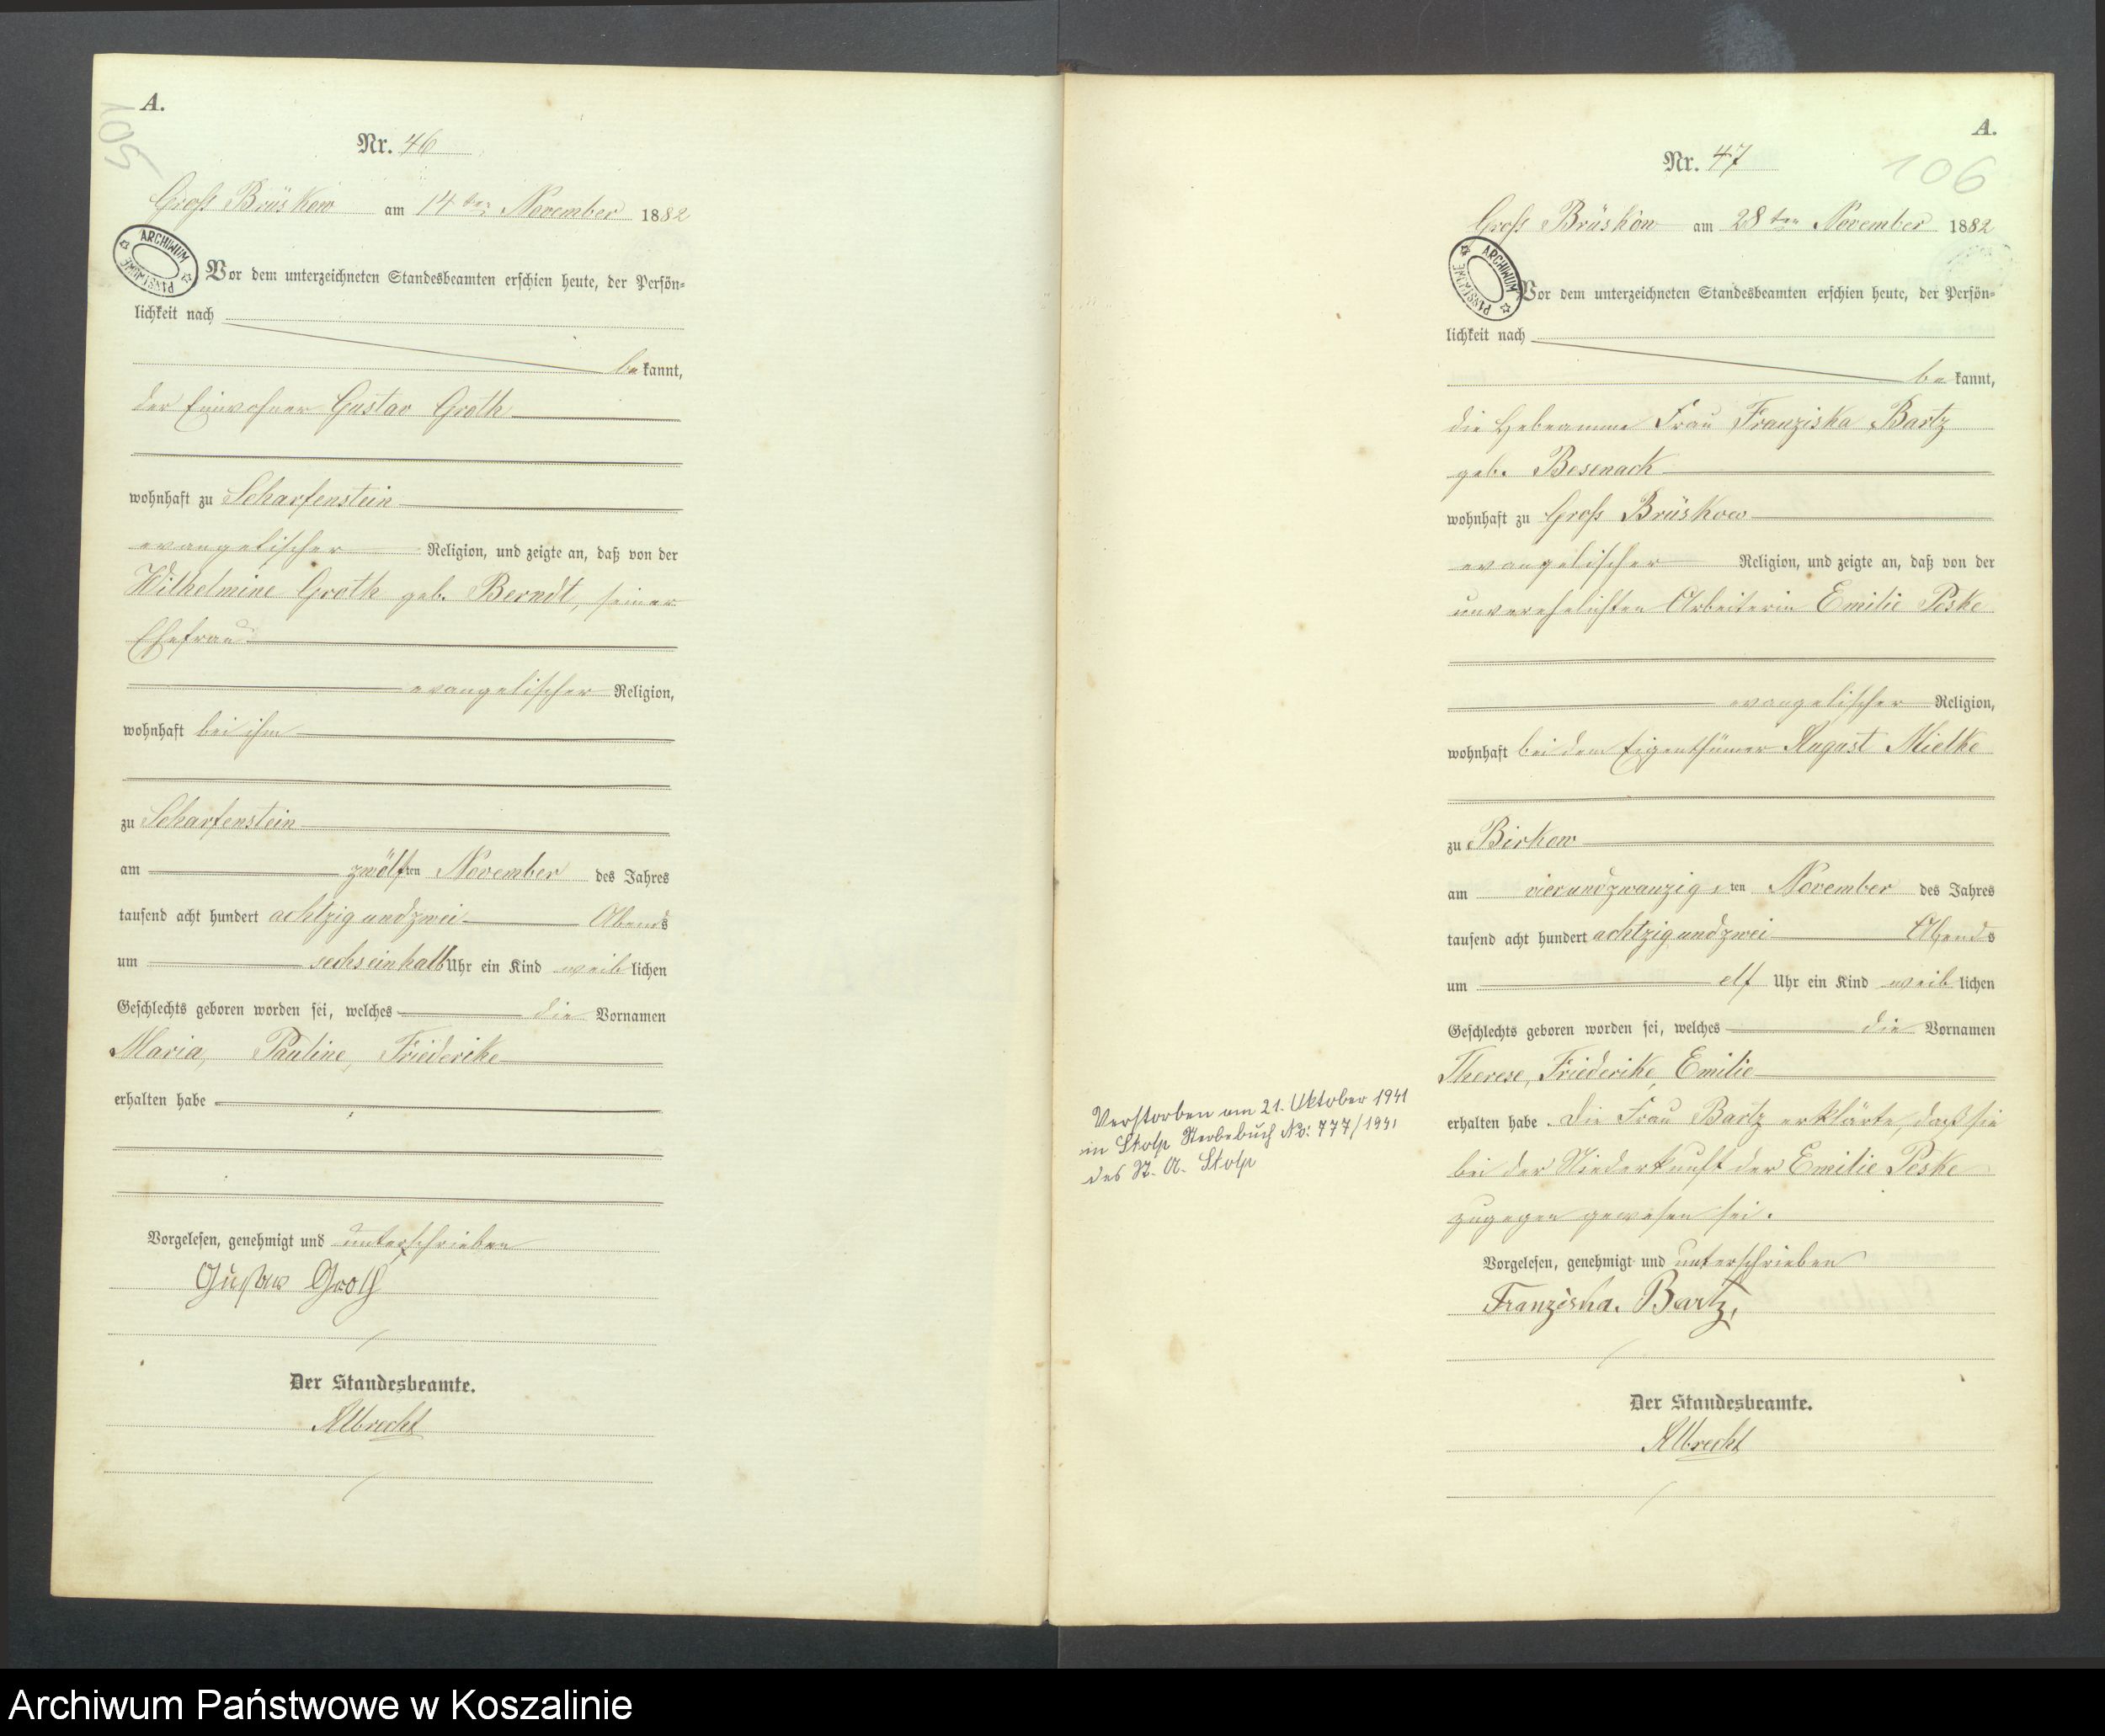 A.
105
Nr. 46
Groß Brüskow am 14ten November 1882
ARCHIWUM PAŃSTWOWE
Vor dem unterzeichneten Standesbeamten erschien heute, der Persön-
lichkeit nach
bekannt,
der Einwohner Gustav Groth
wohnhaft zu Scharfenstein
evangelischer Religion, und zeigte an, daß von der
Wilhelmine Groth geb. Berndt, seiner
Ehefrau
evangelischer Religion,
wohnhaft bei ihm
zu Scharfenstein
am zwölften November des Jahres
tausend acht hundert achtzig und zwei Abends
um sechseinhalb Uhr ein Kind weiblichen
Geschlechts geboren worden sei, welches die Vornamen
Maria, Pauline, Friederike
erhalten habe
Vorgelesen, genehmigt und unterschrieben
Gustav Groth
Der Standesbeamte.
Albrecht
A.
106
Nr. 47
Groß Brüskow am 28ten November 1882
ARCHIWUM PAŃSTWOWE
Vor dem unterzeichneten Standesbeamten erschien heute, der Persön-
lichkeit nach
bekannt,
die Hebeamme Frau Franziska Bartz
geb. Besenack
wohnhaft zu Groß Brüskow
evangelischer Religion, und zeigte an, daß von der
unverehelichten Arbeiterin Emilie Peske
evangelischer Religion,
wohnhaft bei dem Eigenthümer August Mielke
zu Birkow
am vierundzwanzigsten November des Jahres
tausend acht hundert achtzig und zwei Abends
um elf Uhr ein Kind weiblichen
Geschlechts geboren worden sei, welches die Vornamen
Therese, Friederike, Emilie
erhalten habe. Die Frau Bartz erklärte, daß sie
bei der Niederkunft der Emilie Peske
zugegen gewesen sei.
Vorgelesen, genehmigt und unterschrieben
Franziska. Bartz,
Der Standesbeamte.
Albrecht
Verstorben am 21. Oktober 1941
in Stolp Sterbebuch No: 777/1941
des St. A. Stolp
Archiwum Państwowe w Koszalinie